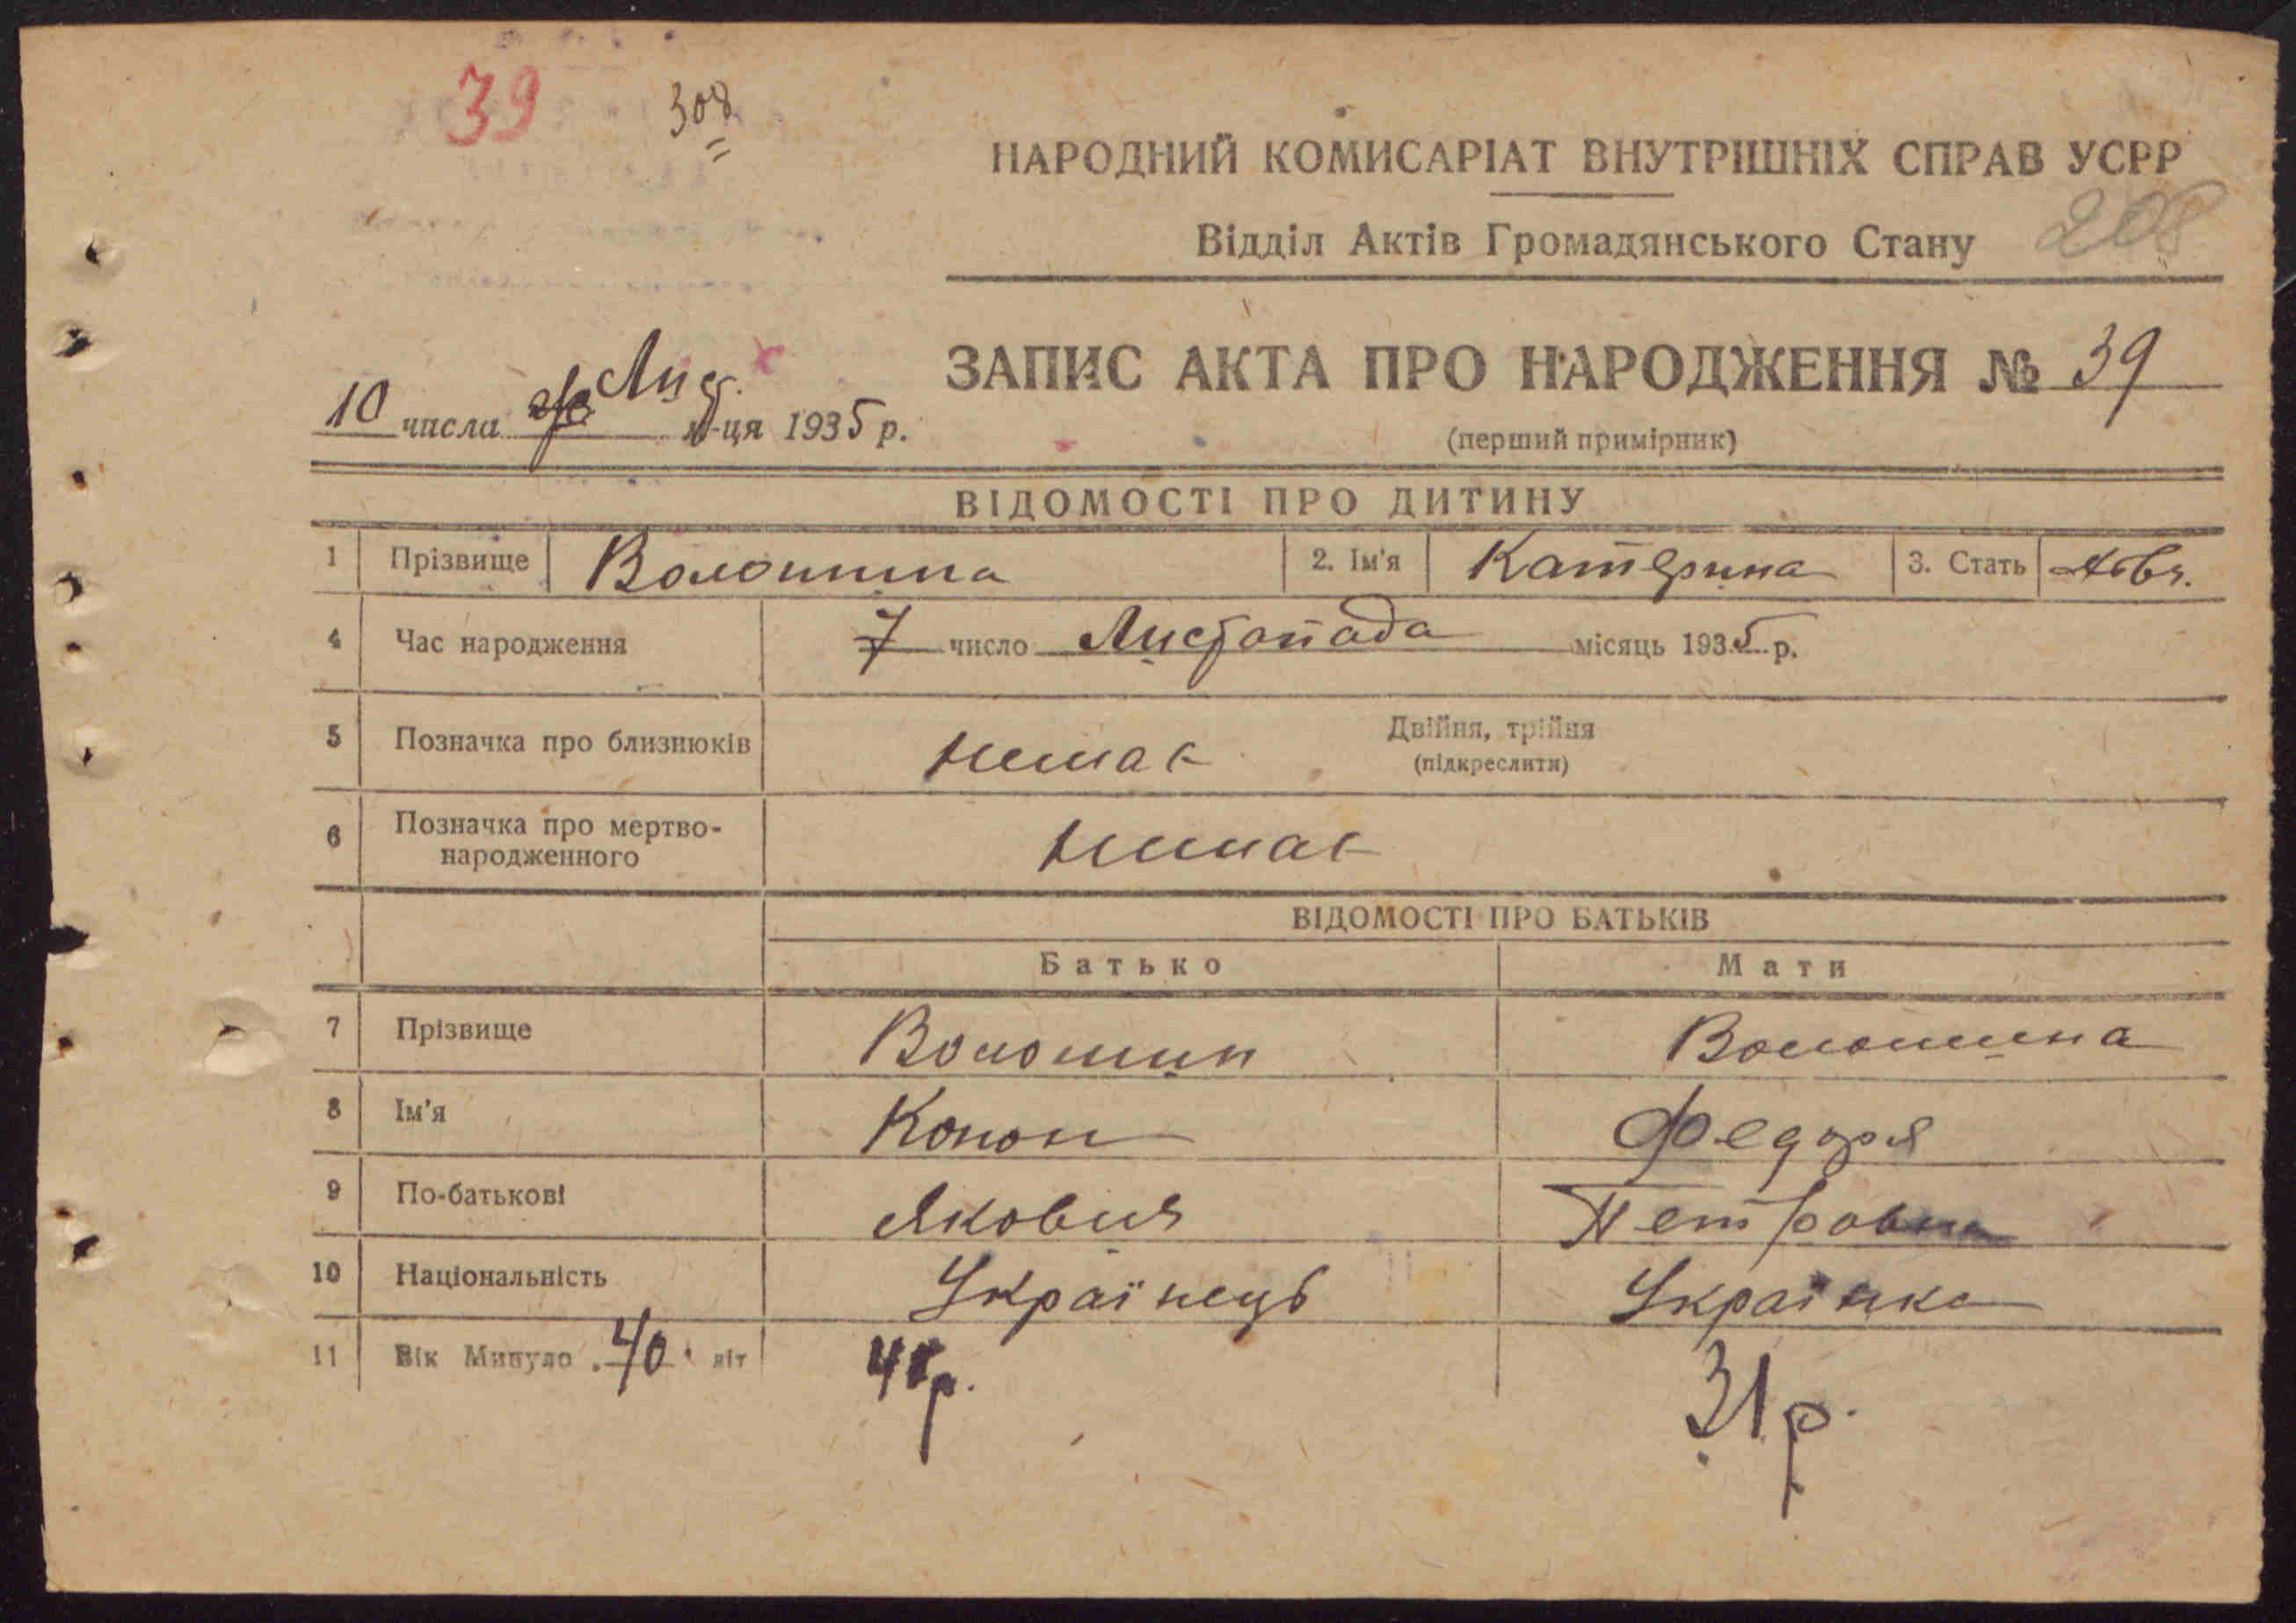 39 308
НАРОДНИЙ КОМИСАРІАТ ВНУТРІШНІХ СПРАВ УСРР
Відділ Актів Громадянського Стану 208
ЗАПИС АКТА ПРО НАРОДЖЕННЯ № 39
10 числа Лис. м-ця 1935 р.
(перший примірник)
ВІДОМОСТІ ПРО ДИТИНУ
1 Прізвище Волошина 2. Ім'я Катерина 3. Стать
4 Час народження 7 число Листопада місяць 1935 р.
5 Позначка про близнюків немає Двійня, трійня
(підкреслити)
6 Позначка про мертво-
народженного немає
ВІДОМОСТІ ПРО БАТЬКІВ
Батько Мати
7 Прізвище Волошин Волошина
8 Ім'я Конон Федоря
9 По-батькові Якович Петровна
10 Національність Українець Українка
11 Вік Минуло 40 літ р. 31 р.